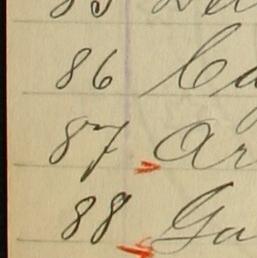 86 Ca
87 Ar
88 Ga